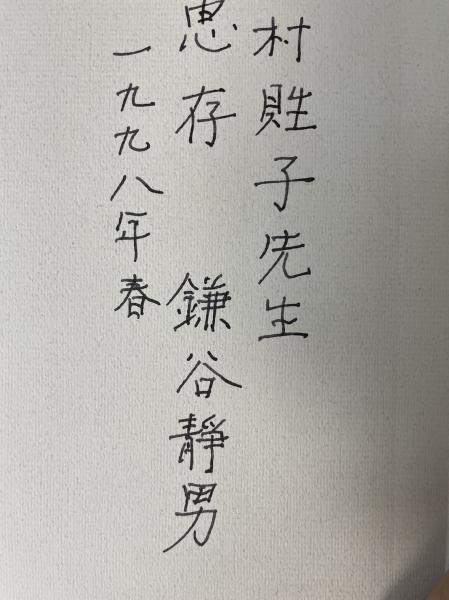 村貹子先生
恵存 鎌谷静男
一九九八年春